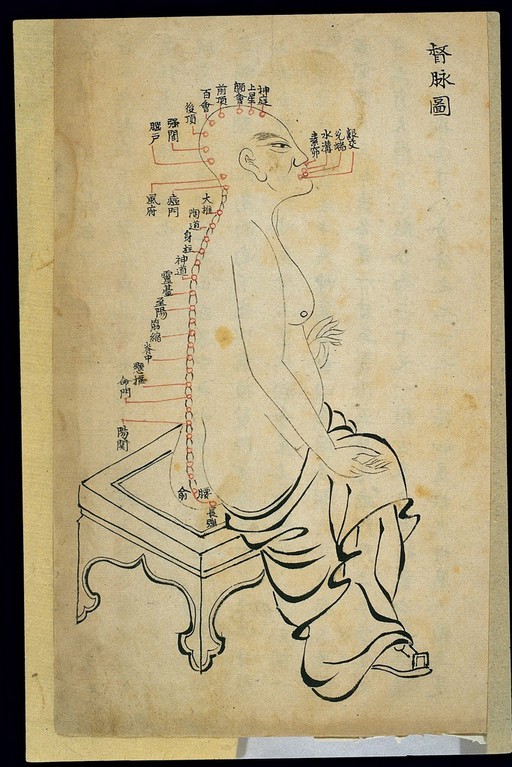 督脉圖
齗交
兌端
水溝
神庭
上星
顖會
前頂
百會
後頂
强間
腦戶
風府
瘂門
大椎
陶道
身柱
神道
靈臺
至陽
筋縮
脊中
懸樞
命門
陽關
腰俞
長强